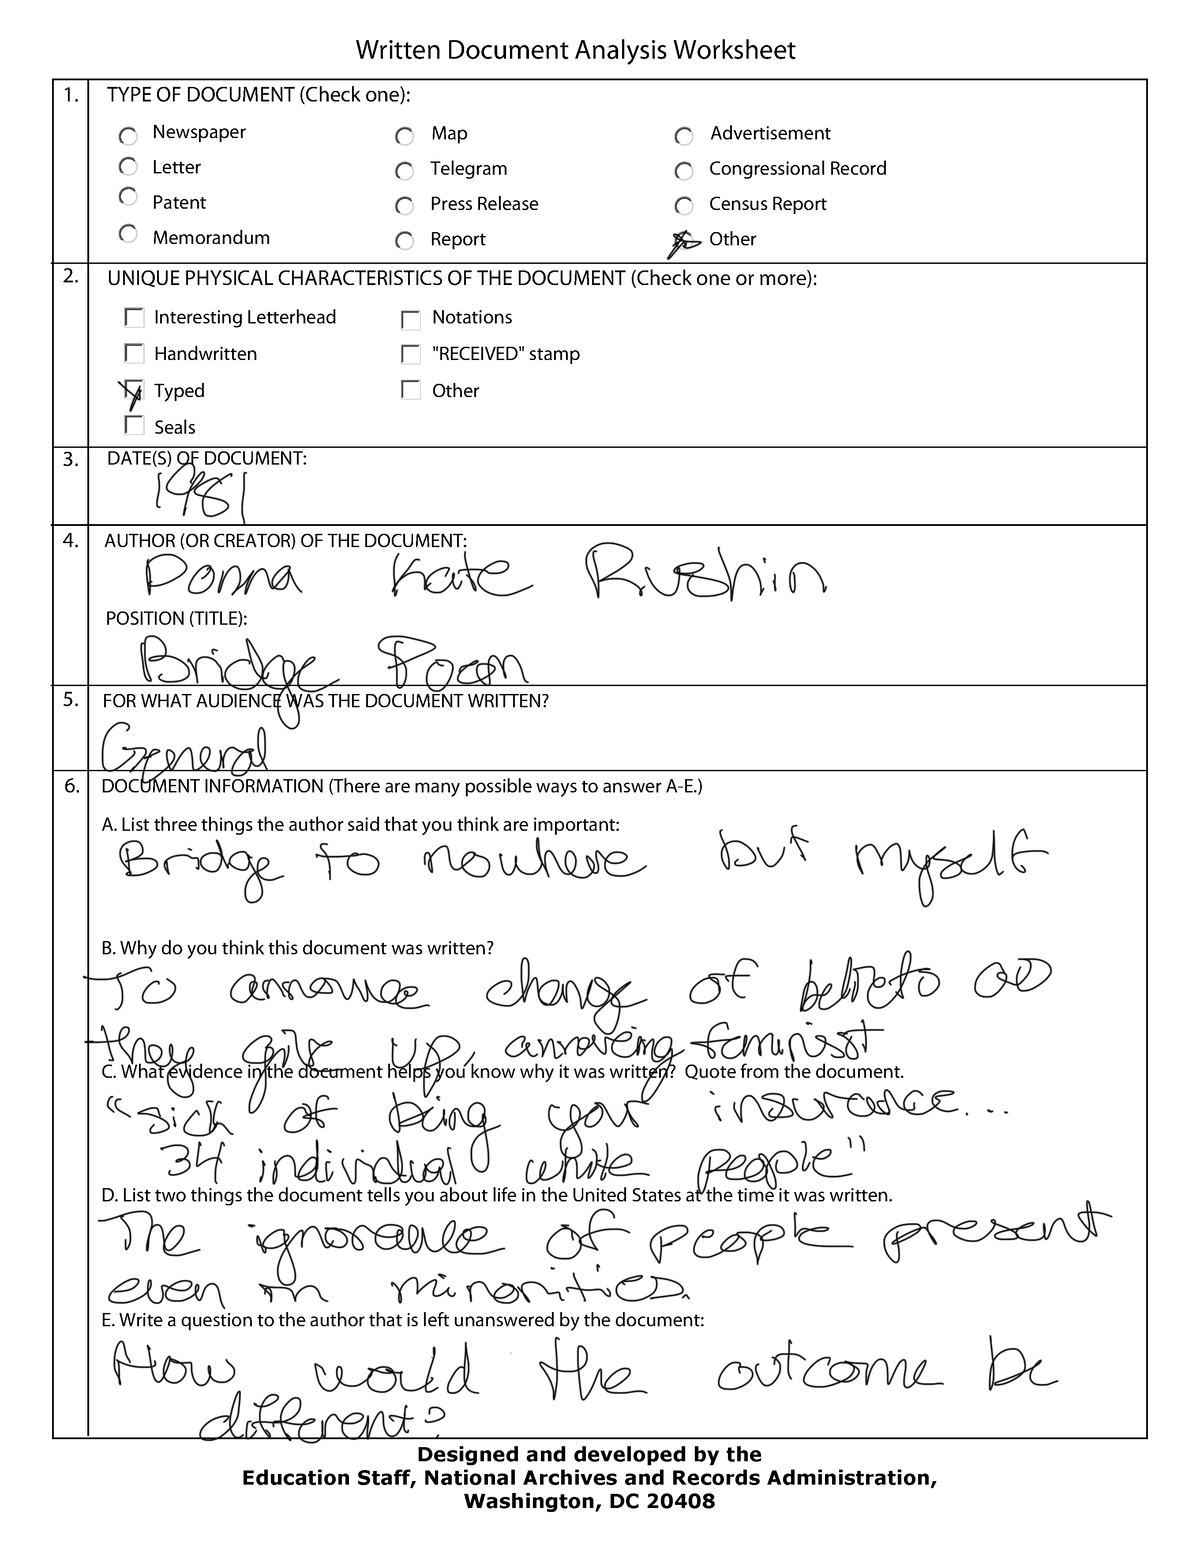 Written Document Analysis Worksheet
1. TYPE OF DOCUMENT (Check one):
Newspaper Map Advertisement
Letter Telegram Congressional Record
Patent Press Release Census Report
Memorandum Report Other
2. UNIQUE PHYSICAL CHARACTERISTICS OF THE DOCUMENT (Check one or more):
Interesting Letterhead Notations
Handwritten "RECEIVED" stamp
Typed Other
Seals
3. DATE(S) OF DOCUMENT:
1981
4. AUTHOR (OR CREATOR) OF THE DOCUMENT:
Donna Kate Rushin
POSITION (TITLE):
Bridge Poem
5. FOR WHAT AUDIENCE WAS THE DOCUMENT WRITTEN?
General
6. DOCUMENT INFORMATION (There are many possible ways to answer A-E.)
A. List three things the author said that you think are important:
Bridge to nowhere but myself
B. Why do you think this document was written?
To announce change of
they give up, feminist
C. What evidence in the document helps you know why it was written? Quote from the document.
"sick of being your insurance...
34 individual white people"
D. List two things the document tells you about life in the United States at the time it was written.
The ignorance of people present
even in minorities.
E. Write a question to the author that is left unanswered by the document:
How would the outcome be
different?
Designed and developed by the
Education Staff, National Archives and Records Administration,
Washington, DC 20408